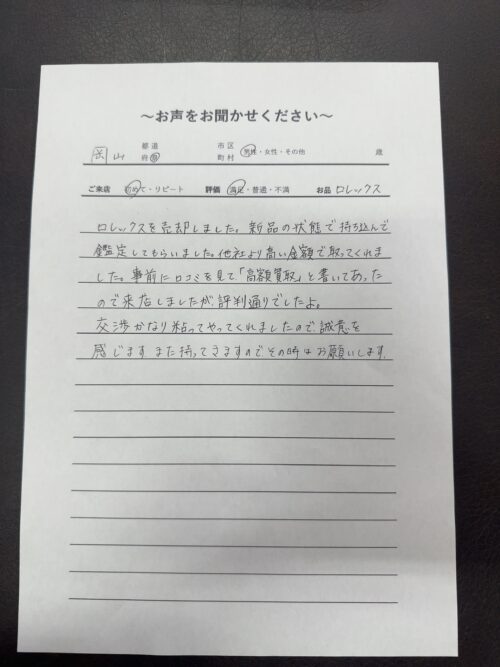 ～お声をお聞かせください～
岡山 都道府県 市区町村 男性・女性・その他 歳
ご来店 初めて・リピート 評価 満足・普通・不満 お品 ロレックス
ロレックスを売却しました。新品の状態で持ち込んで
鑑定してもらいました。他社より高い金額で取ってくれま
した。事前に口コミを見て「高額買取」と書いてあった
ので来店しましたが、評判通りでしたよ。
交渉かなり粘ってやってくれましたので、誠意を
感じます。また持ってきますので、その時はお願いします。